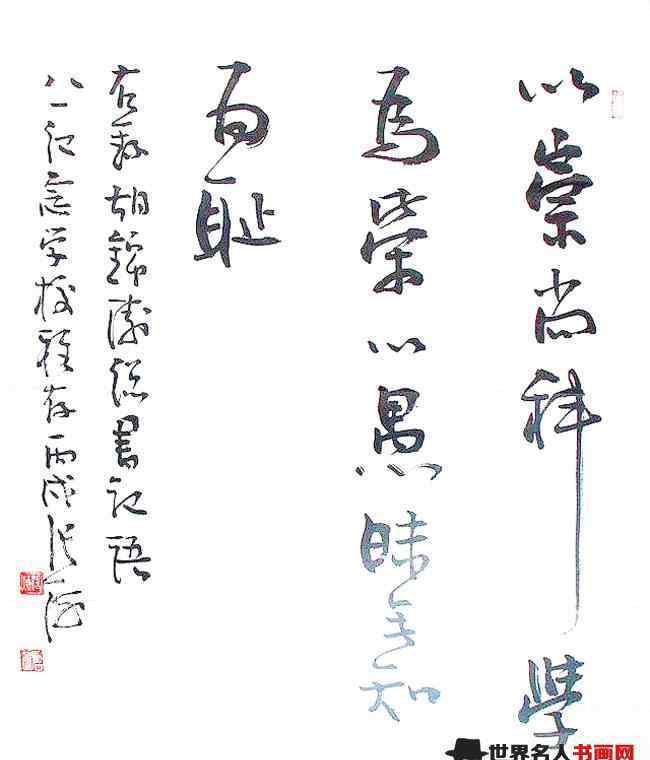 以崇尚科學
為榮以愚昧无知
為耻
右録胡錦濤總書記語
八一記念学校雅存丙戌
世界名人书画网